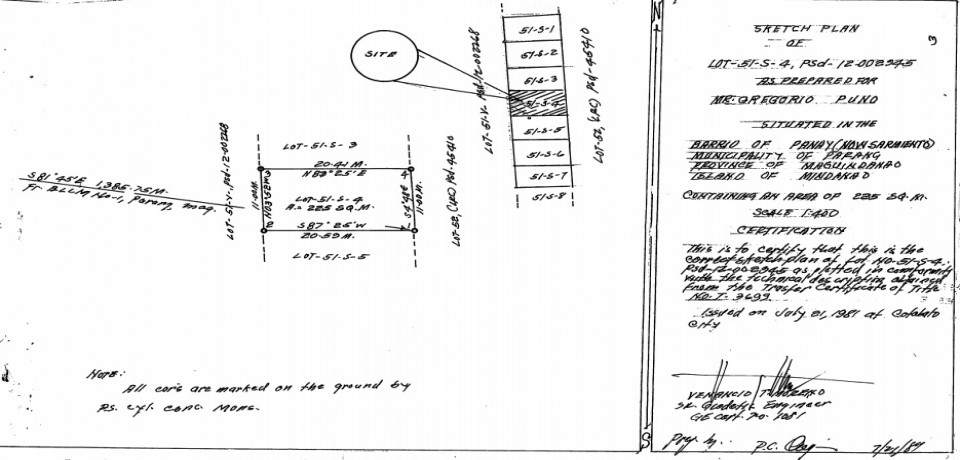 SITE
51-S-1
51-S-2
51-S-3
51-S-4
51-S-5
51-S-6
51-S-7
51-S-8
LOT-51-V, Psd-12-002268
LOT-52, (LRC) Psd-45410
LOT-51-S-3
20.41 M.
N87°25'E
LOT-51-S-4
A = 225 SQ.M.
S87°25'W
20.59 M.
LOT-51-S-5
LOT-51-V, Psd-12-002268
11.00 M.
N03°52'W
3
4
2
1
S4°48'E
11.00 M.
LOT-52, (LRC) Psd-45410
S81°45'E 1,385.75 M.
Fr. BLLM No-1, Parang, Mag.
NOTE:
All cors are marked on the ground by
P.S. Cyl. Conc. Mons.
N
S
3
SKETCH PLAN
OF
LOT-51-S-4, PSd-12-002945
AS PREPARED FOR
MR. GREGORIO PUNO
SITUATED IN THE
BARRIO OF PANAY (NOVA SARMIENTO)
MUNICIPALITY OF PARANG
PROVINCE OF MAGUINDANAO
ISLAND OF MINDANAO
CONTAINING AN AREA OF 225 SQ.M.
SCALE 1:400
CERTIFICATION
This is to certify that this is the
correct sketch plan of lot NO-51-S-4,
PSd-12-002945 as plotted in conformity
with the technical description obtained
From the Trasfer Certificate of Title
NO. T- 3699.
Issued on July 21, 1987 at Cotabato
City
VENANCIO T. MORENO
Sr. Geodetic Engineer
GE Cert. No. 1081
Prep. by:
P.C.
7/21/87